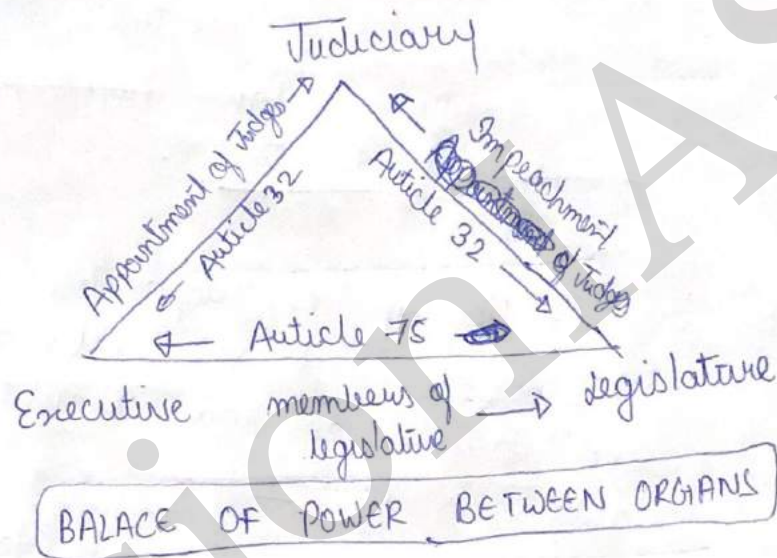 Judiciary
Appointment of Judges →
← Article 32
← Impeachment
of Judges
Article 32 →
← Article 75
Executive
members of → Legislature
legislative
BALACE OF POWER BETWEEN ORGANS